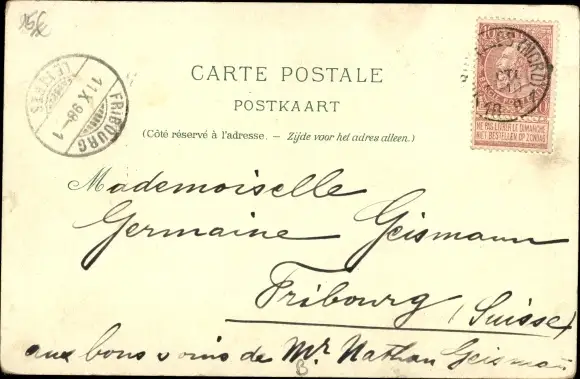 15€
CARTE POSTALE
POSTKAART
(Côté réservé à l'adresse. — Zijde voor het adres alleen.)
FRIBOURG
LETTRES
11 X 98 - 1
NE PAS LIVRER LE DIMANCHE
NIET BESTELLEN OP ZONDAG
Mademoiselle
Germaine Geismann
Fribourg (Suisse)
aux bons soins de Mr Nathan
B